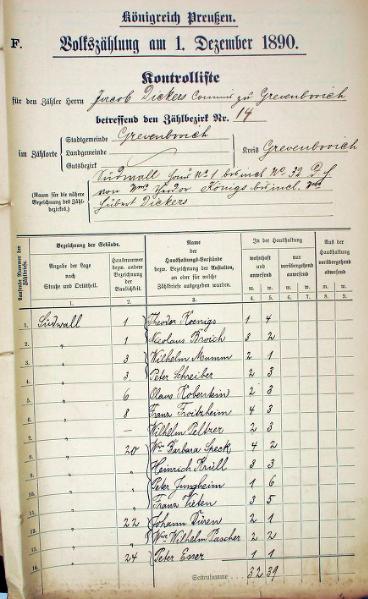 Königreich Preußen.
F. Volkszählung am 1. Dezember 1890.
Kontrolliste
für den Zähler Herrn Jacob Dickers zu Grevenbroich
betreffend den Zählbezirk Nr. 14
im Zählorte
Stadtgemeinde Grevenbroich
Landgemeinde
Gutsbezirk
Kreis Grevenbroich
(Raum für die nähere Bezeichnung des Zählbezirks.)
Südwall Haus No 1 bis incl. No 32
von Königs bis incl.
Hubert Dickers
Laufende Nummer der Zählbriefe.
Bezeichnung der Gebäude.
Angabe der Lage nach Straße und Ortstheil.
Hausnummer bezw. andere Bezeichnung der Baulichkeit
Name der Haushaltungs-Vorstände bezw. Bezeichnung der Anstalten, an oder für welche Zählbriefe ausgegeben wurden.
In der Haushaltung
wohnhaft und anwesend
nur vorübergehend anwesend
Aus der Haushaltung vorübergehend abwesend
m. w. m. w. m. w.
1. 2. 3. 4. 5. 6. 7. 8. 9.
1. Südwall 1 Theodor Koenigs 1 4
2. " 1 Nicolaus Broich 3 2
3. " 3 Wilhelm Mumm 2 1
4. " 3 Peter Schreiber 2 3
" 6 2 3
" 8 Franz Froitzheim 4 3
" – Wilhelm Peltzer 2 3
" 20 Ww Barbara Speck 4 2
" Heinrich Krüll 3 3
" Peter Jungheim 1 6
" Franz Vieten 3 5
" 22 Johann Düren 2 1
" Wwe Wilhelm Pascher 2 2
" 24 Peter Esser 1 1
Seitensumme 32 39